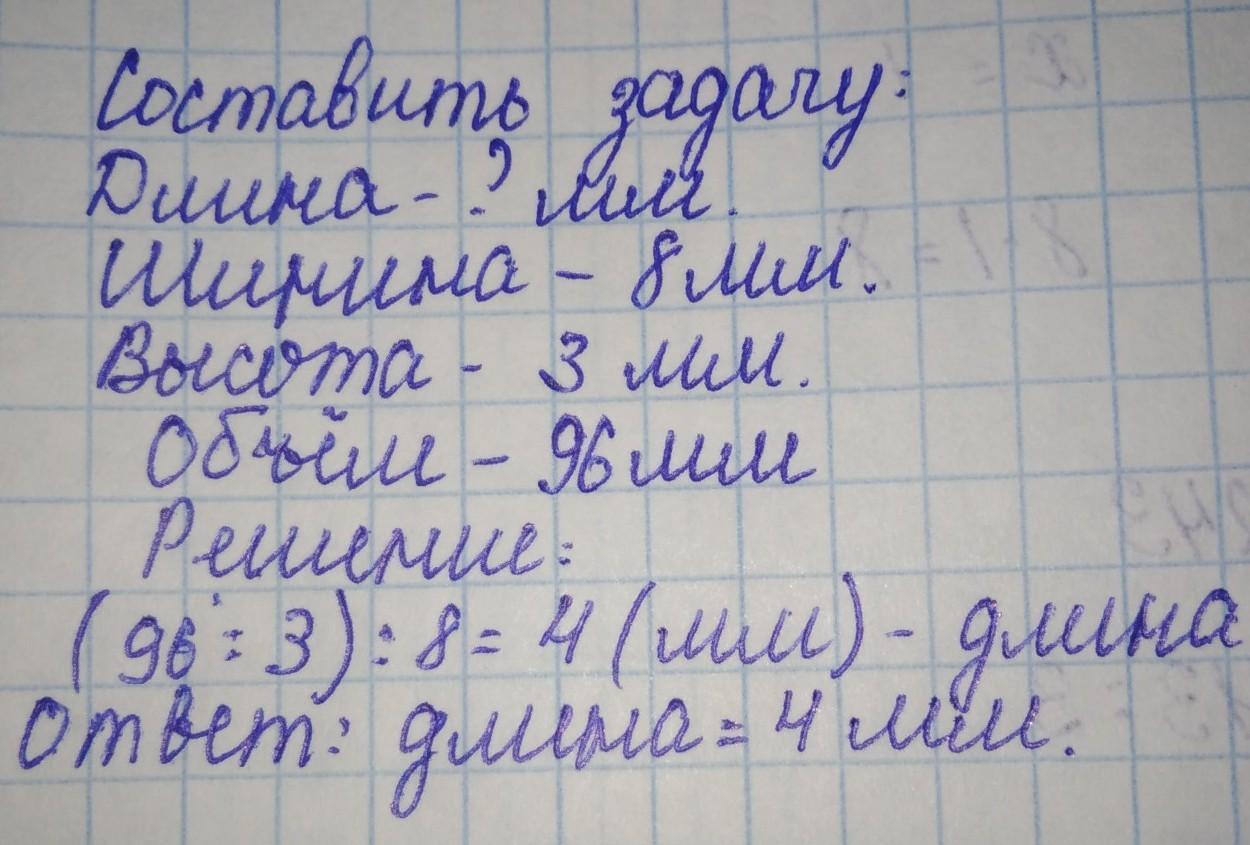 Составить задачу:
Длина - ? мм.
Ширина - 8 мм.
Высота - 3 мм.
Объём - 96 мм
Решение:
(96 : 3) : 8 = 4 (мм) - длина
Ответ: длина = 4 мм.